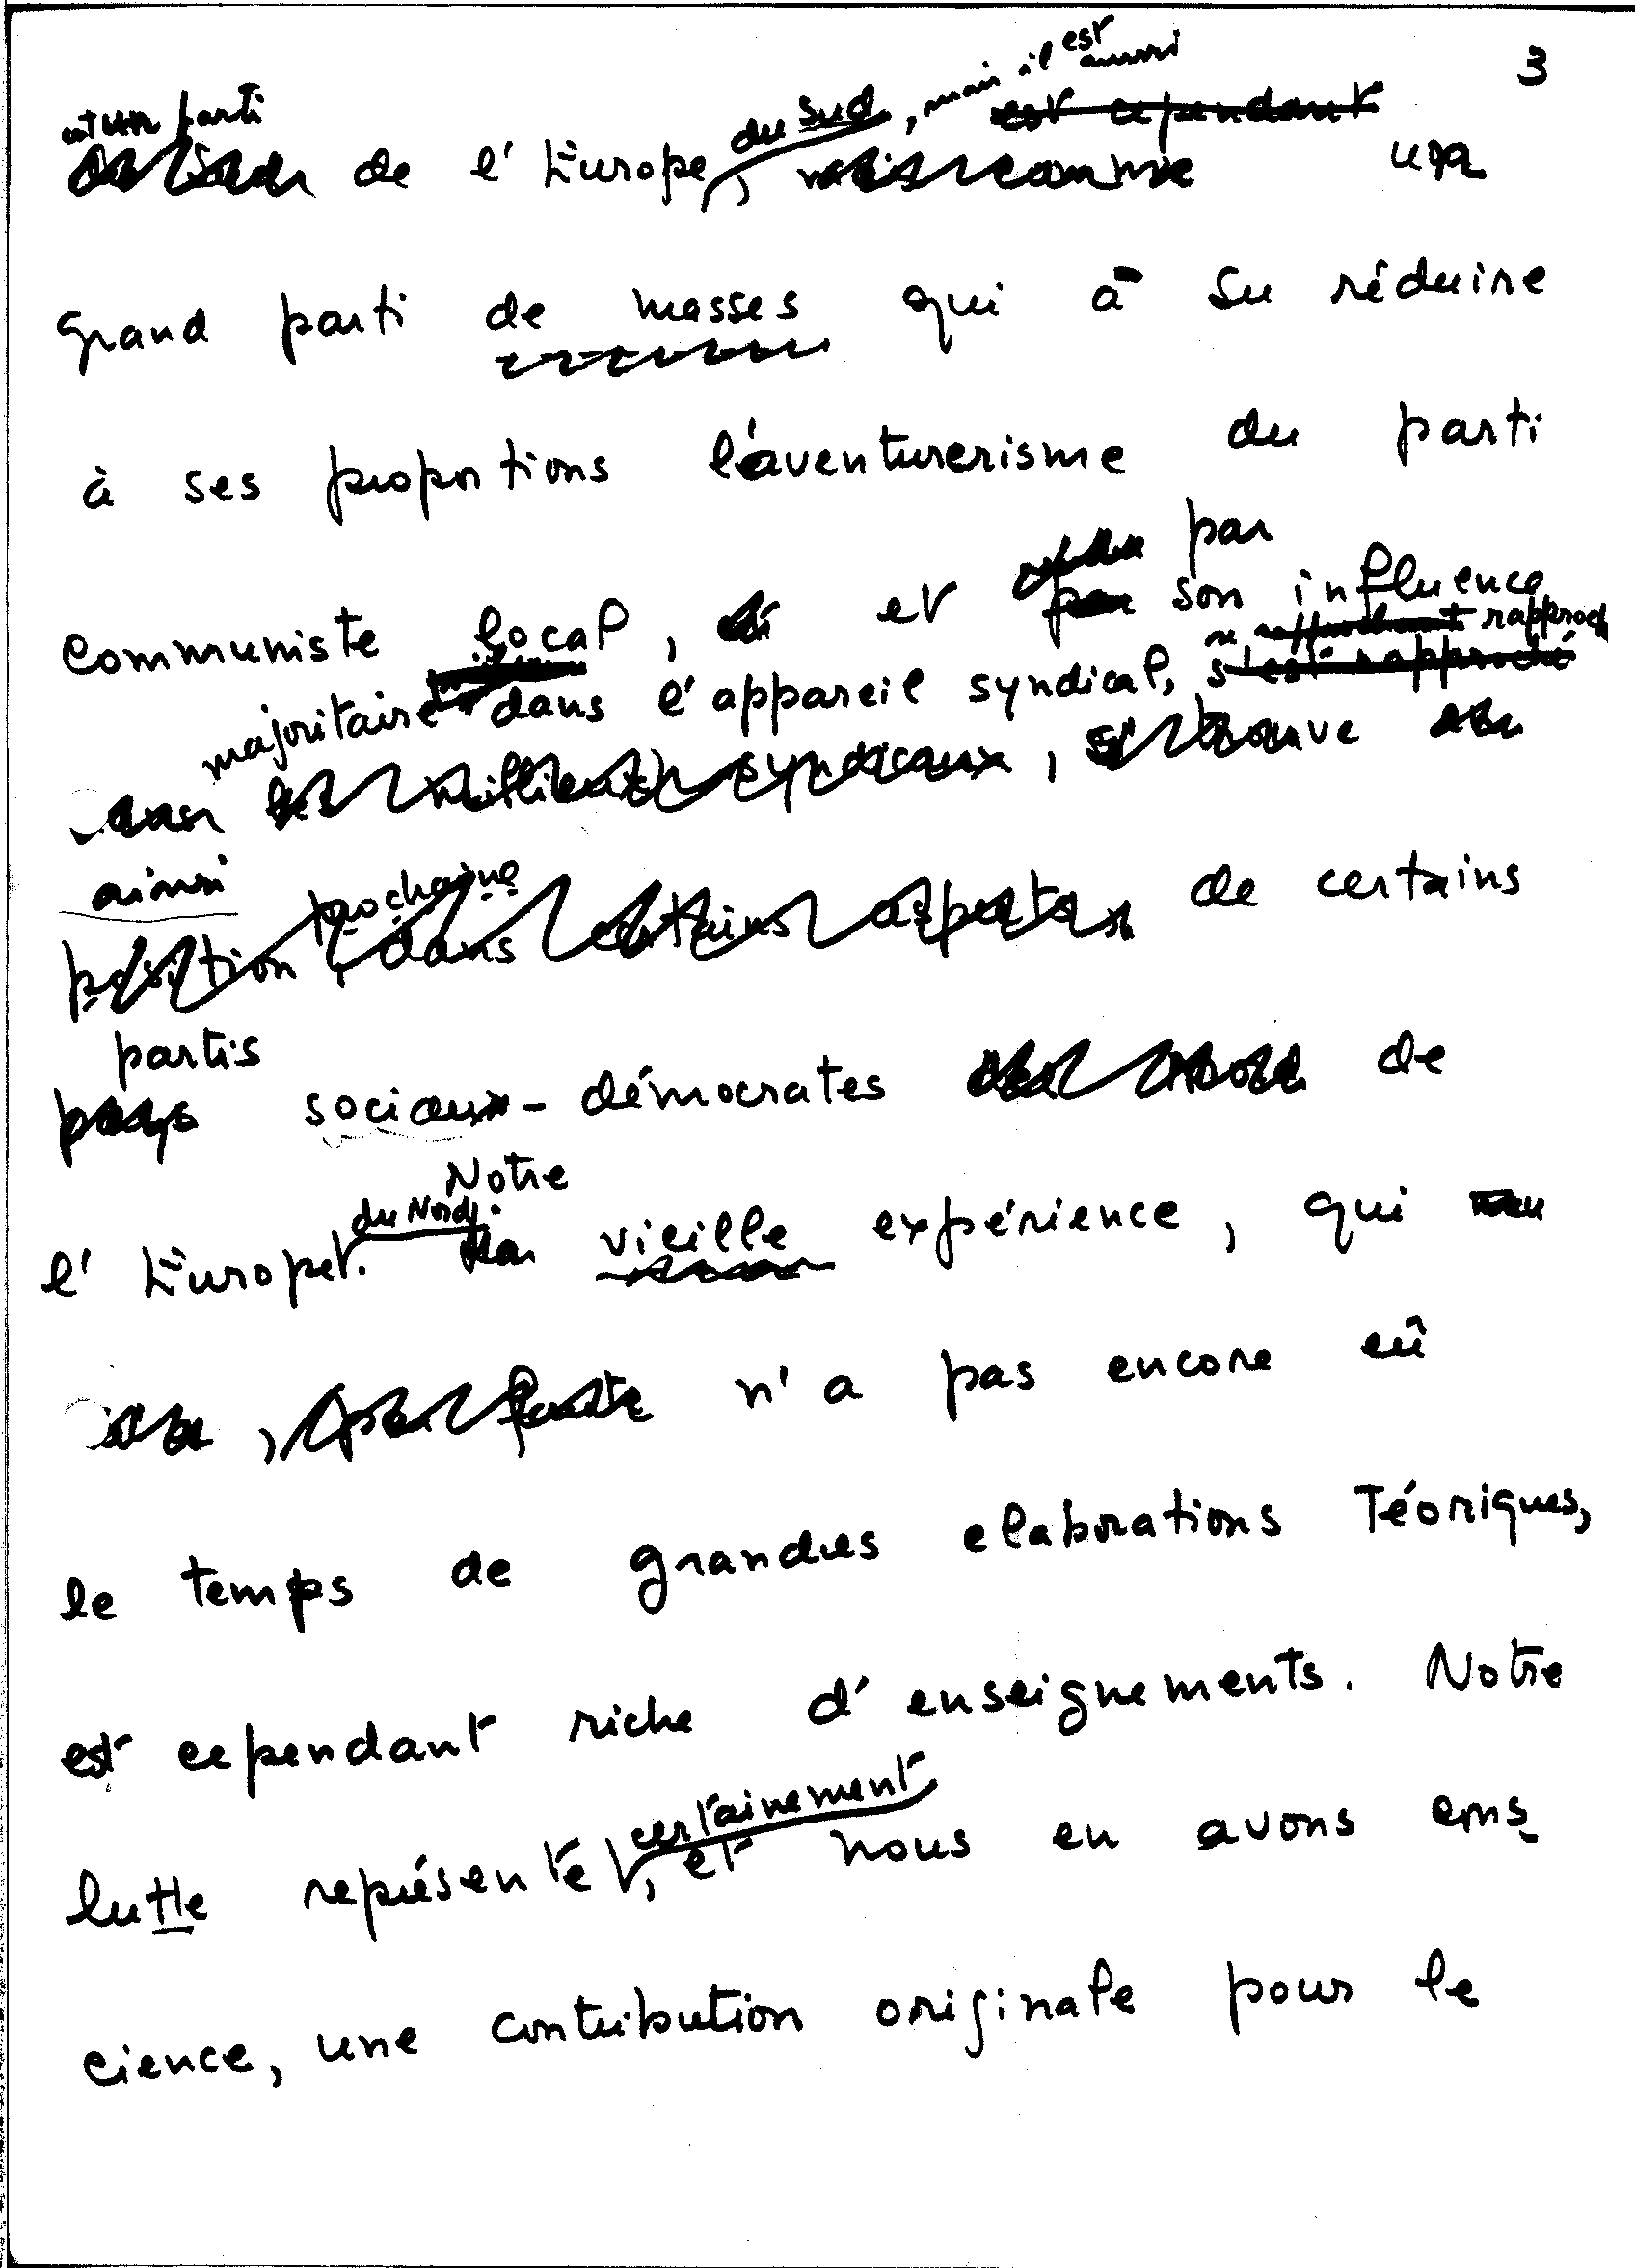 3
est un parti de l'Europe du Sud, mais il est aussi un
grand parti de masses qui à su réduire
à ses proportions l'aventurerisme du parti
communiste local, et par son influence
majoritaire dans l'appareil syndical, se rapproche
ainsi
de certains
partis sociaux-démocrates de
l'Europe du Nord. Notre vieille expérience, qui
n'a pas encore eû
le temps de grandes elaborations téoriques,
est cependant riche d'enseignements. Notre
lutte représente certainement, et nous en avons cons
cience, une contribution originale pour le